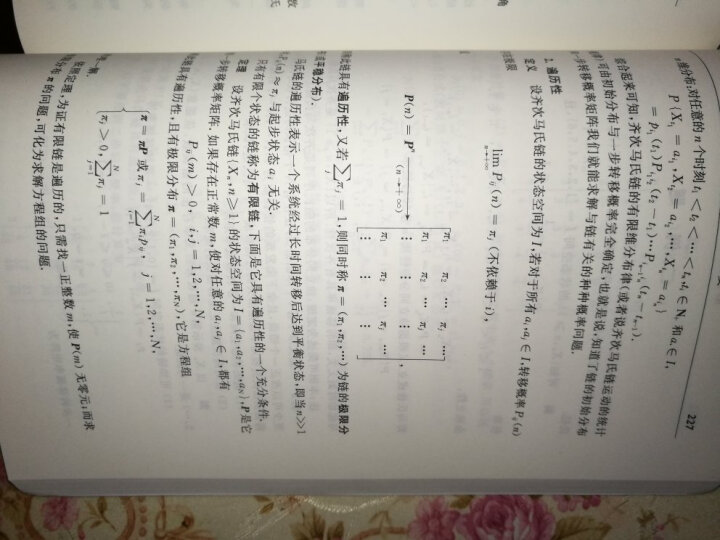 227
维分布:对任意的 n 个时刻 t₁<t₂<…<tₙ,tᵢ∈N₊ 和 aᵢ∈I,
P{X_{t₁}=a_{i₁},X_{t₂}=a_{i₂},…,X_{tₙ}=a_{iₙ}}
=p_{i₁}(t₁)P_{i₁i₂}(t₂-t₁)…P_{iₙ₋₁iₙ}(tₙ-tₙ₋₁).
综合起来可知,齐次马氏链的有限维分布律(或者说齐次马氏链运动的统计
可由初始分布与一步转移概率完全确定,也就是说,知道了链的初始分布
一步转移概率矩阵我们就能求解与链有关的种种概率问题.
2. 遍历性
定义 设齐次马氏链的状态空间为 I,若对于所有 aᵢ,aⱼ∈I,转移概率 Pᵢⱼ(n)
极限
lim_{n→+∞} Pᵢⱼ(n)=πⱼ(不依赖于 i),
P(n)=Pⁿ →(n→+∞) [π₁ π₂ … πⱼ …
π₁ π₂ … πⱼ …
⋮ ⋮ ⋮
⋮ ⋮ ⋮],
此链具有遍历性,又若 ∑ⱼ πⱼ=1,则同时称 π=(π₁,π₂,…)为链的极限分
平稳分布).
马氏链的遍历性表示一个系统经过长时间转移后达到平衡状态,即当 n≫1
Pᵢⱼ(n)≈πⱼ 与起步状态 aᵢ 无关.
只有有限个状态的链称为有限链,下面是它具有遍历性的一个充分条件.
定理 设齐次马氏链{Xₙ,n≥1}的状态空间为 I={a₁,a₂,…,a_N},P 是它
一步转移概率矩阵.如果存在正常数 m,使对任意的 aᵢ,aⱼ∈I,都有
Pᵢⱼ(m)>0, i,j=1,2,…,N,
链具有遍历性,且有极限分布 π=(π₁,π₂,…,π_N),它是方程组
{π=πP 或 πⱼ=∑_{i=1}^{N} πᵢpᵢⱼ, j=1,2,…,N,
πⱼ>0, ∑_{j=1}^{N} πⱼ=1
一解.
依照定理,为证有限链是遍历的,只需找一正整数 m,使 P(m)无零元;而求
分布 π 的问题,可化为求解方程组的问题.